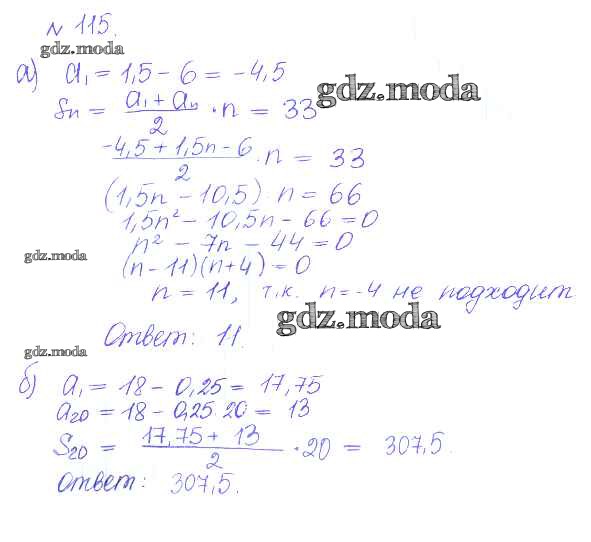 № 115.
gdz.moda
а) a₁ = 1,5 - 6 = -4,5
gdz.moda
Sn = (a₁ + an)/2 · n = 33
(-4,5 + 1,5n - 6)/2 · n = 33
(1,5n - 10,5) · n = 66
1,5n² - 10,5n - 66 = 0
n² - 7n - 44 = 0
gdz.moda
(n - 11)(n + 4) = 0
n = 11, т.к. n = -4 не подходит
gdz.moda
Ответ: 11.
gdz.moda
б) a₁ = 18 - 0,25 = 17,75
a₂₀ = 18 - 0,25 · 20 = 13
S₂₀ = (17,75 + 13)/2 · 20 = 307,5.
Ответ: 307,5.